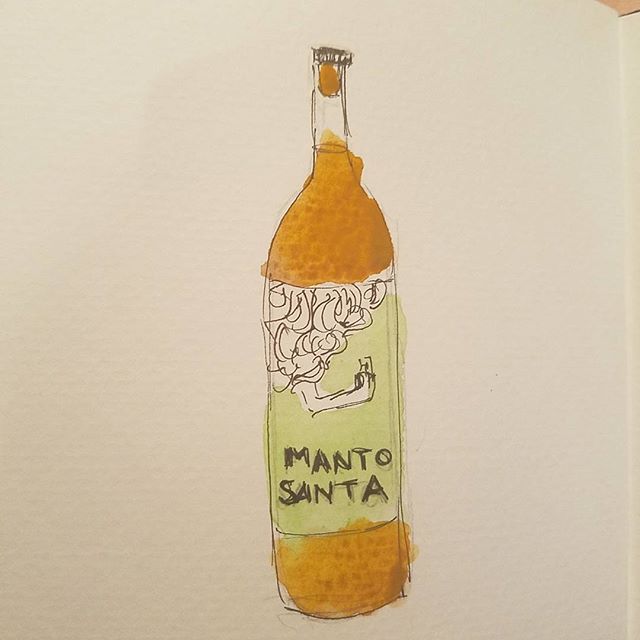 MANTO
SANTA